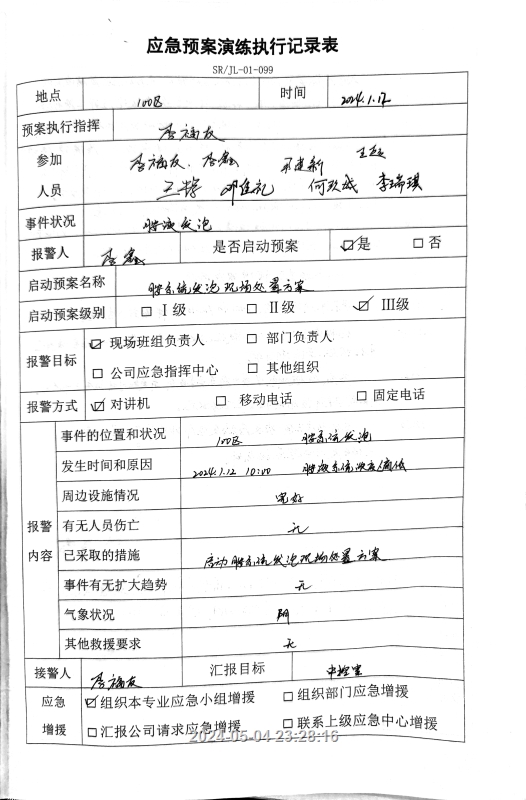 应急预案演练执行记录表
SR/JL-01-099
地点 100区 时间 2024.1.12
预案执行指挥 李福友
参加人员 李福友、李鑫 王超
何玖成 李瑞琪
事件状况 胺液发泡
报警人 李鑫 是否启动预案 ☑是 □否
启动预案名称 胺系统发泡现场处置方案
启动预案级别 □ I级 □ II级 ☑ III级
报警目标 ☑ 现场班组负责人 □ 部门负责人
□ 公司应急指挥中心 □ 其他组织
报警方式 ☑ 对讲机 □ 移动电话 □ 固定电话
报警内容
事件的位置和状况 100区 胺系统发泡
发生时间和原因 2024.1.12 10:00 胺液系统
周边设施情况 完好
有无人员伤亡 无
已采取的措施 启动胺系统发泡现场处置方案
事件有无扩大趋势 无
气象状况 阴
其他救援要求 无
接警人 李福友 汇报目标 中控室
应急增援 ☑组织本专业应急小组增援 □组织部门应急增援
□汇报公司请求应急增援 □联系上级应急中心增援
2024-05-04 23:28:16